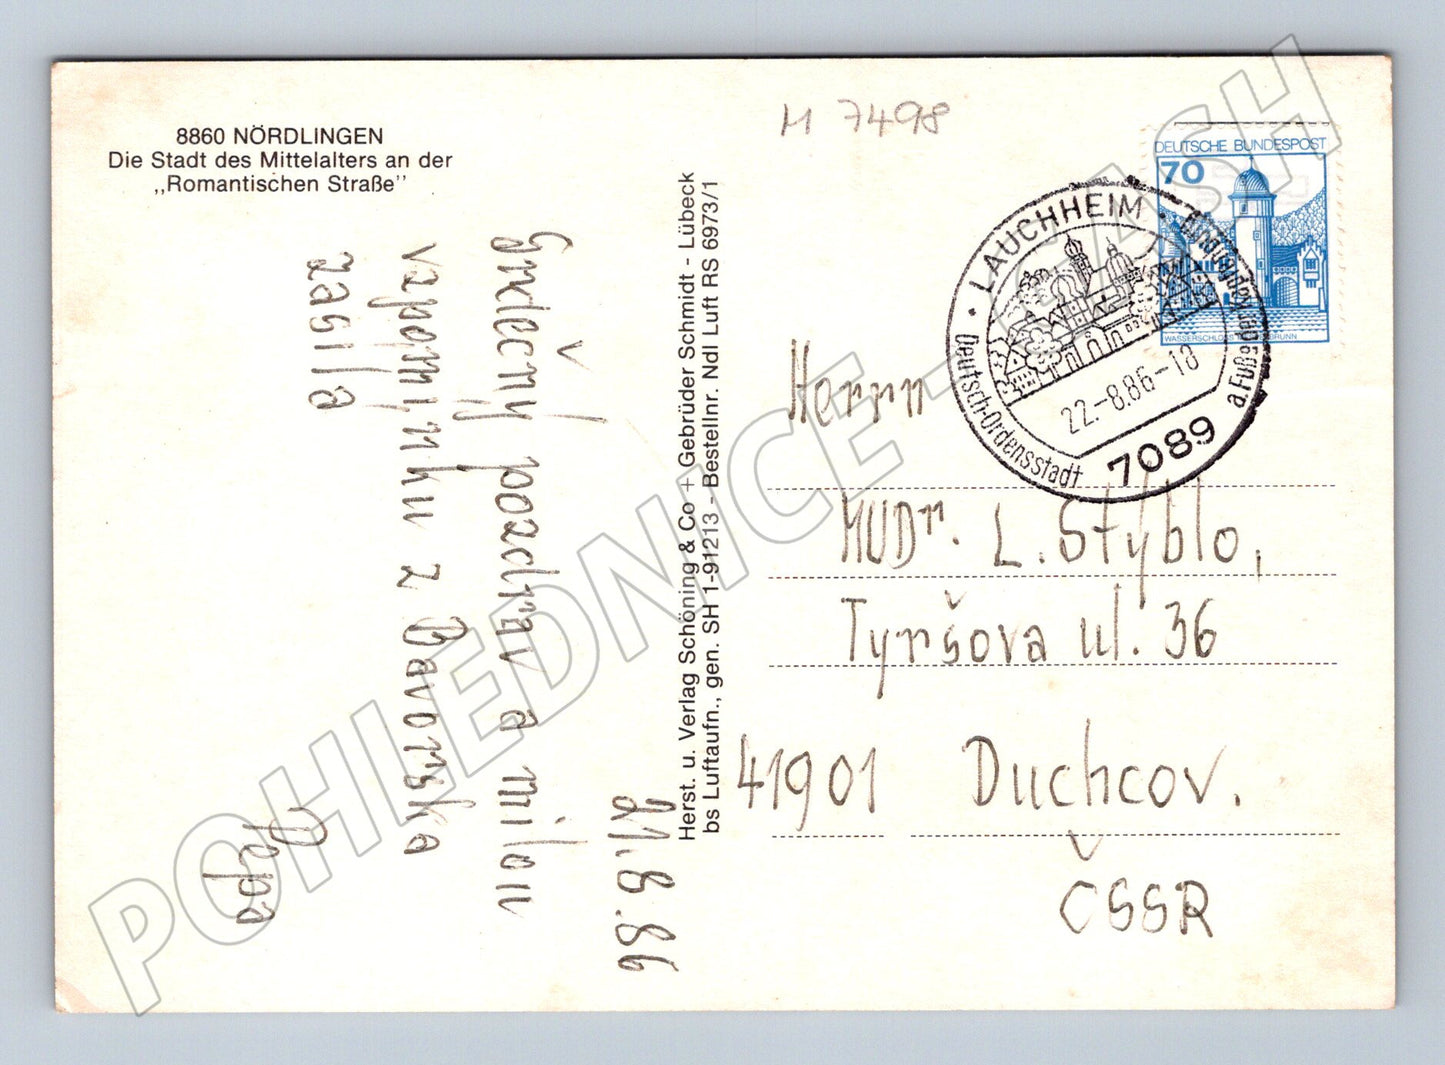 8860 NÖRDLINGEN
Die Stadt des Mittelalters an der
,,Romantischen Straße"
M 7498
DEUTSCHE BUNDESPOST
70
WASSERSCHLOSS
LAUCHHEIM
a. Fuße der Kapfenburg
Deutsch-Ordensstadt
22.-8.86-18
7089
21.8.86
Srdečný pozdrav a milou
vzpomínku z Bavorska
zasílá
Pepa
Herst. u. Verlag Schöning & Co + Gebrüder Schmidt - Lübeck
bs Luftaufn., gen. SH 1-91213 - Bestellnr. Ndl Luft RS 6973/1
Herrn
MUDr. L. Stýblo,
Tyršova ul. 36
41901 Duchcov.
ČSSR
POHLEDNICE - CASH